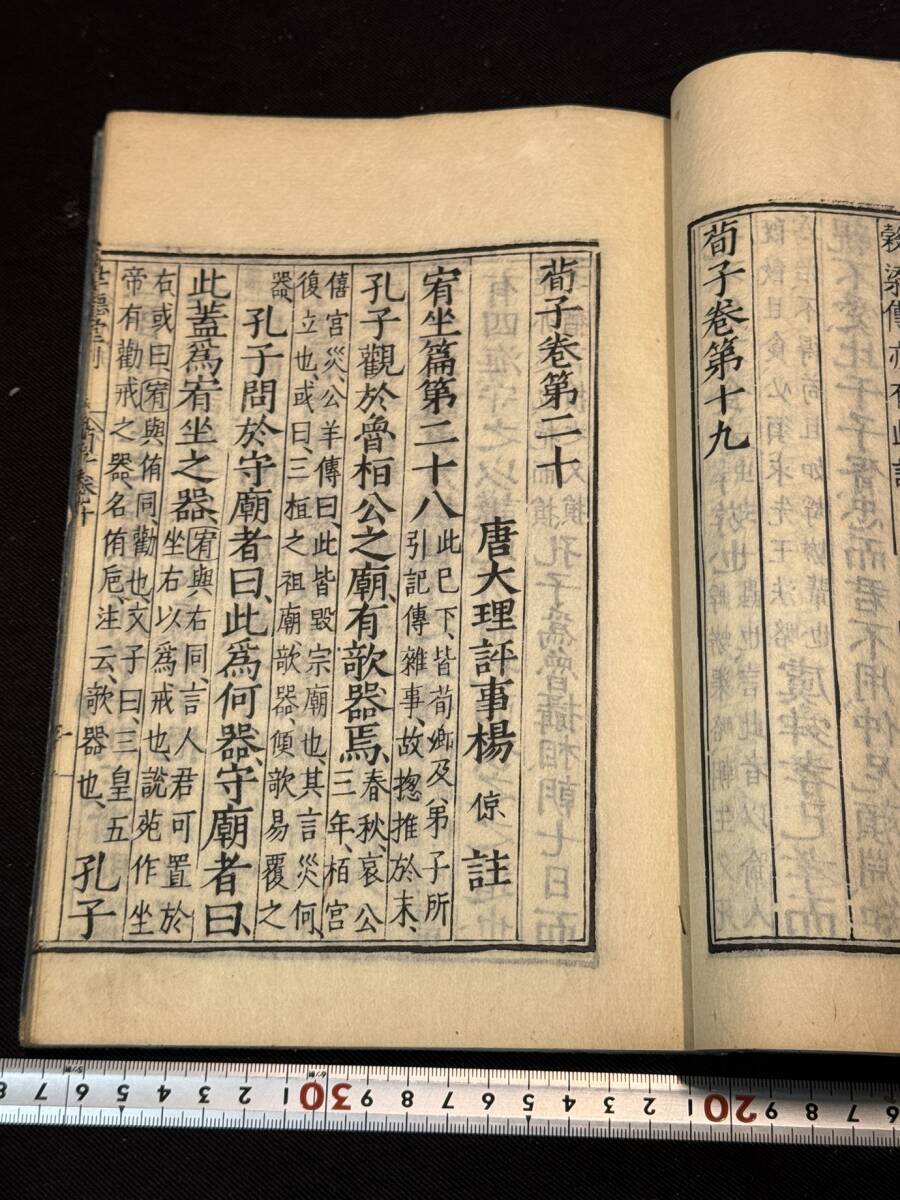 荀子卷第十九
荀子卷第二十
唐大理評事楊　倞　註
宥坐篇第二十八 此巳下、皆荀鄉及弟子所
引記傳雜事、故揔推於末、
孔子觀於魯柏公之廟、有欹器焉、春秋、哀公
三年、栢宮
僖宮災、公羊傳曰、此皆毀宗廟也、其言災何、
復立也、或曰、三桓之祖廟欹器、傾欹易覆之
器、
孔子問於守廟者曰、此爲何器、守廟者曰、
此蓋爲宥坐之器、宥與右同、言人君可置於
坐右以爲戒也、說苑作坐
右、或曰、宥與侑同、勸也、文子曰、三皇五
帝有勸戒之器、名侑巵、注云、欹器也、
孔子